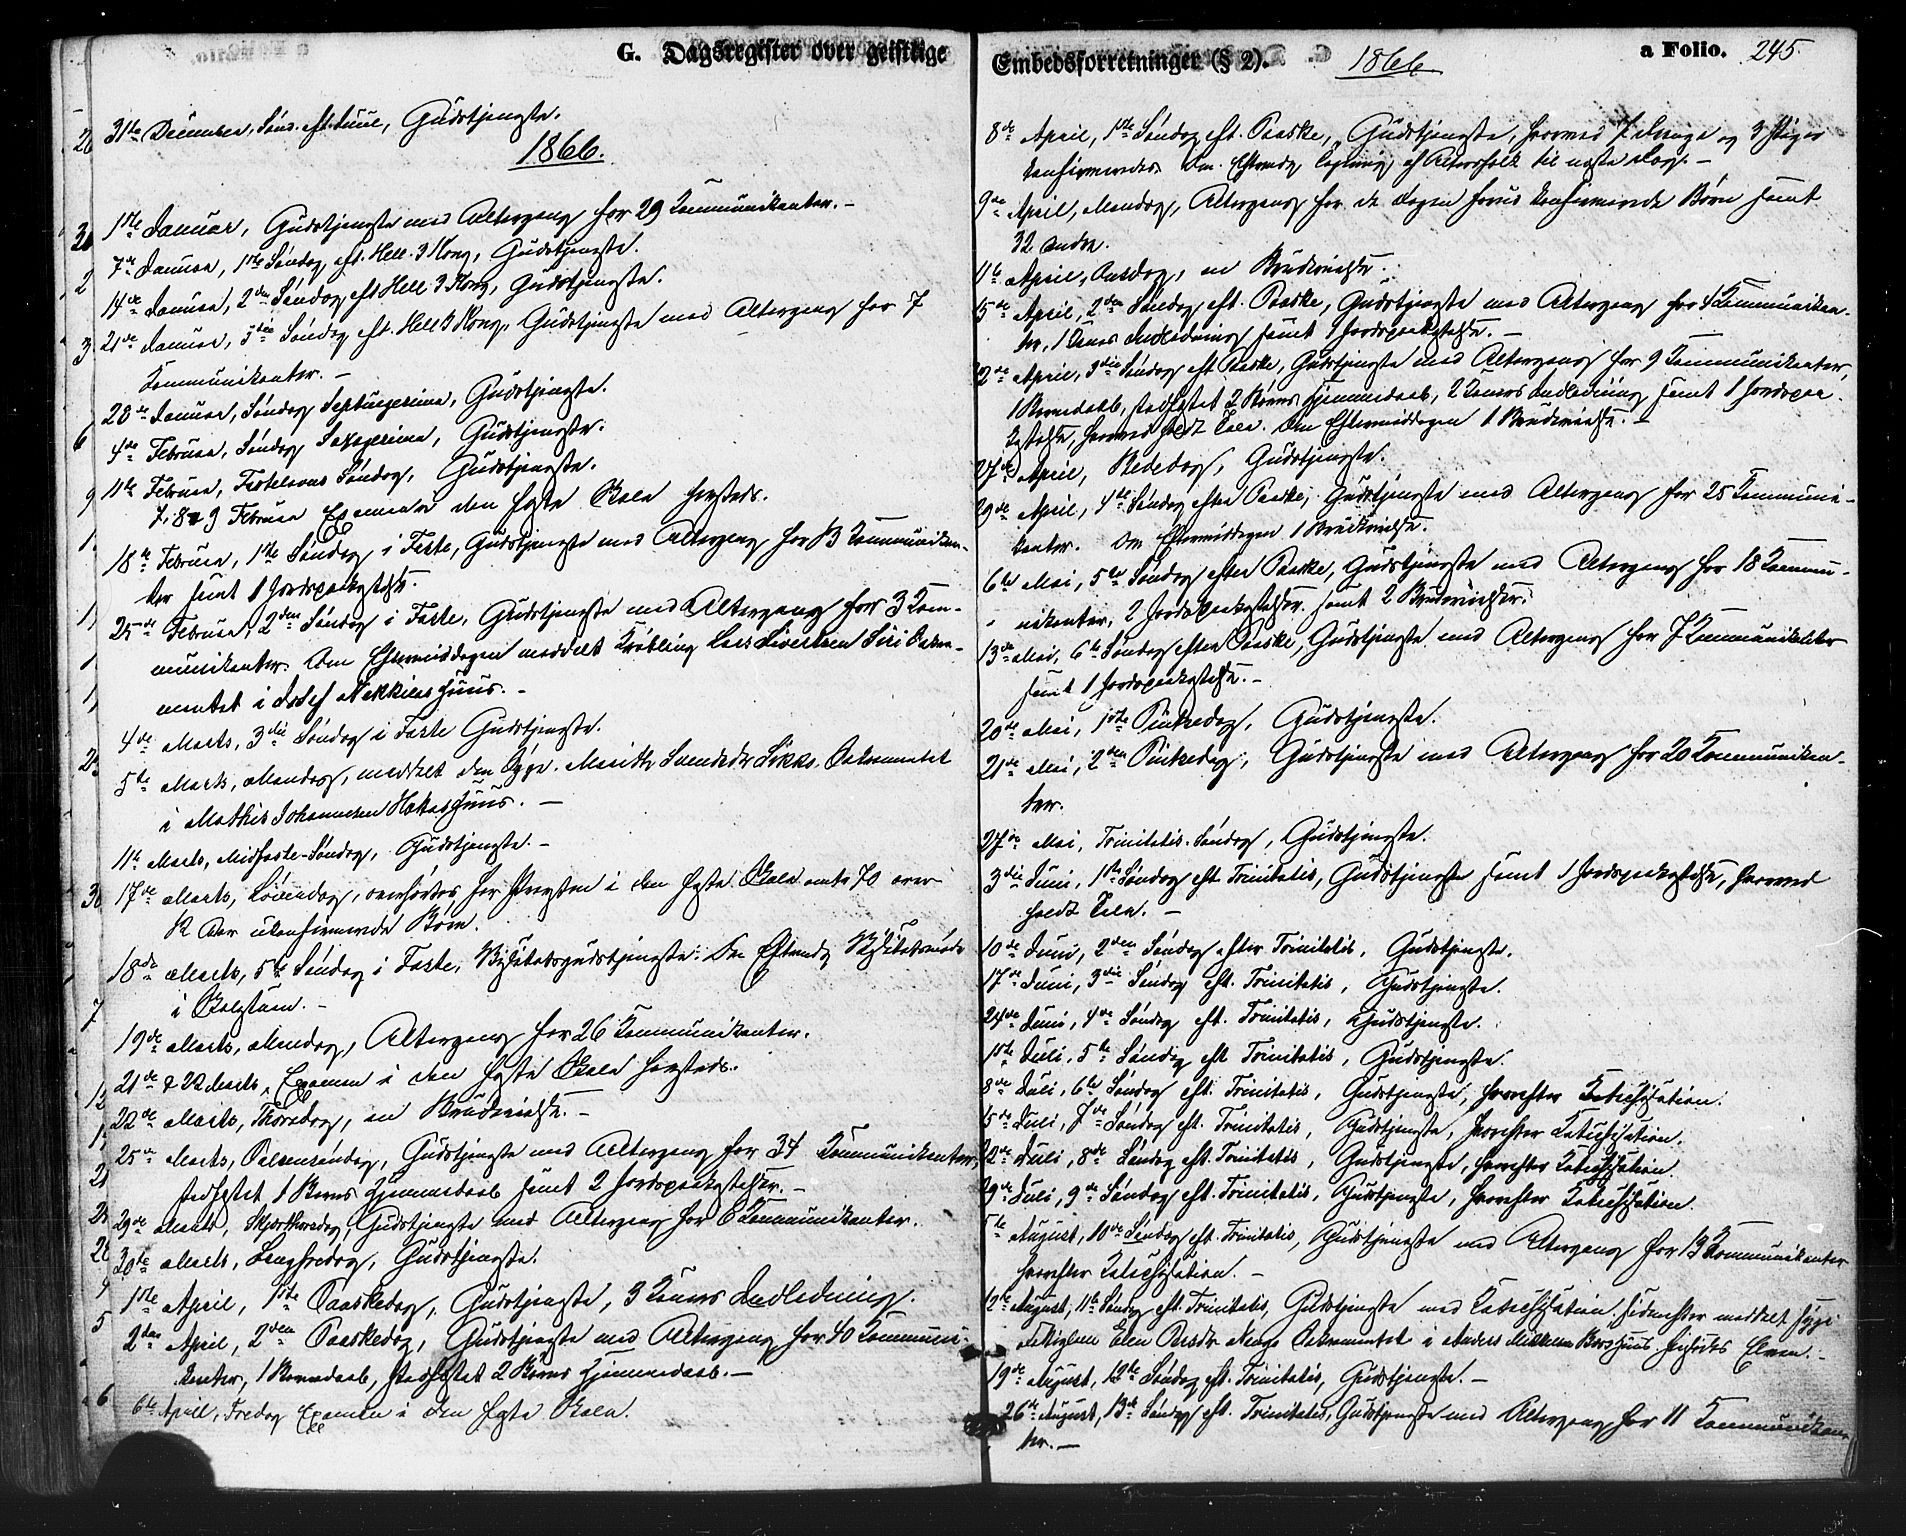 G. Dagsregister over geistlige
31te December, Sønd. eft. Juul, Gudstjeneste.
1866.
1ste Januar, Gudstjeneste med Altergang for 29 Kommunikanter. -
7de Januar, 1ste Søndag eft. Hell. 3 Kong, Gudstjeneste.
14de Januar, 2den Søndag eft Hell. 3 Kong, Gudstjeneste.
21de Januar, 3die Søndag eft. Hell 3 Kong, Gudstjeneste med Altergang for 7
Kommunikanter. -
28de Januar, Søndag Septuagesima, Gudstjeneste.
4de Februar, Søndag Sexagesima, Gudstjeneste.
11te Februar, Fastelavns Søndag, Gudstjeneste.
7, 8 & 9 Februar Examen i den faste Skole
18de Februar, 1ste Søndag i Faste, Gudstjeneste med Altergang for 13 Kommunikan-
ter samt 1 Jordpaakastelse.
25de Februar, 2den Søndag i Faste, Gudstjeneste med Altergang for 3 Kom-
munikanter. Den Eftermiddagen meddelt Lars Sivertsen Siri Sakra-
mentet i Nekkilas Huus. -
4de Marts, 3die Søndag i Faste Gudstjeneste.
5te Marts, Mandag, meddelt den syge Marith Sakramentet
i Mathis Johannesen Huus. -
11te Marts, Midfaste-Søndag, Gudstjeneste. -
17de Marts, Løverdag, overhørtes for Præsten i den faste Skole 70 over
12 Aar ukonfirmerede Børn.
18de Marts, 5te Søndag i Faste, Visitatsgudstjeneste. Den Eftermdg Visitatsmøde
i Skolestuen. -
19de Marts, Mandag, Altergang for 26 Kommunikanter.
21de & 22 Marts, Examen i den faste Skole
22de Marts, Thorsdag, en Brudevielse. -
25de Marts, Palmesøndag, Gudstjeneste med Altergang for 34 Kommunikanter,
stadfæstet 1 Barns Hjemmedaab samt 2 Jordpaakastelser. -
29de Marts, Skjærthorsdag, Gudstjeneste med Altergang for 6 Kommunikanter.
30te Marts, Langfredag, Gudstjeneste.
1ste April, 1ste Paaskedag, Gudstjeneste, 3 Koners Indledning.
2den April, 2den Paaskedag, Gudstjeneste med Altergang for 40 Kommuni-
kanter, 1 Barnedaab, stadfæstet 2 Børns Hjemmedaab. -
6te April, Fredag Examen i den faste Skole.
Embedsforretninger (§ 2). 1866 a Folio. 245.
8de April, 1ste Søndag eft. Paaske, Gudstjeneste, hvorved 7 Drenge og 3 Piger
konfirmeredes. Den Eftermdg af Altersfolk til næste Dag. -
9de April, Mandag, Altergang for de Dagen forud konfirmerede Børn samt
32 andre.
11te April, Onsdag, en Brudevielse.
15de April, 2den Søndag eft. Paaske, Gudstjeneste med Altergang for 4 Kommunikan-
ter, 1 Kones Indledning samt 1 Jordpaakastelse. -
22de April, 3die Søndag eft Paaske, Gudstjeneste med Altergang for 9 Kommunikanter,
1 Barnedaab, stadfæstet 2 Børns Hjemmedaab, 2 Koners Indledning samt 1 Jordpaa-
kastelse, hvorved holdt Tale. Den Eftermiddagen 1 Brudevielse. -
27de April, Bededag, Gudstjeneste.
29de April, 4de Søndag efter Paaske, Gudstjeneste med Altergang for 25 Kommuni-
kanter. Den Eftermiddagen 1 Brudevielse.
6te Mai, 5te Søndag efter Paaske, Gudstjeneste med Altergang for 18 Kommu-
nikanter, 2 Jordpaakastelser samt 2 Brudevielser.
13de Mai, 6te Søndag efter Paaske, Gudstjeneste med Altergang for 7 Kommunikanter
samt 1 Jordpaakastelse. -
20de Mai, 1ste Pintsedag, Gudstjeneste.
21de Mai, 2den Pintsedag, Gudstjeneste med Altergang for 20 Kommunikan-
ter.
27de Mai, Trinitatis-Søndag, Gudstjeneste.
3die Juni, 1ste Søndag eft. Trinitatis, Gudstjeneste samt 1 Jordpaakastelse, hvorved
holdt Tale. -
10de Juni, 2den Søndag efter Trinitatis, Gudstjeneste.
17de Juni, 3die Søndag eft. Trinitatis, Gudstjeneste.
24de Juni, 4de Søndag eft. Trinitatis, Gudstjeneste.
1ste Juli, 5te Søndag eft Trinitatis, Gudstjeneste.
8de Juli, 6te Søndag eft. Trinitatis, Gudstjeneste, hvorefter Katechisation.
15de Juli, 7de Søndag eft. Trinitatis, Gudstjeneste, hvorefter Katechisation.
22de Juli, 8de Søndag eft. Trinitatis, Gudstjeneste, hvorefter Katechisation.
29de Juli, 9de Søndag eft. Trinitatis, Gudstjeneste, hvorefter Katechisation.
5te August, 10de Søndag eft. Trinitatis, Gudstjeneste med Altergang for 13 Kommunikanter
hvorefter Katechisation. -
12te August, 11te Søndag eft. Trinitatis, Gudstjeneste med Katechisation. Sidenefter meddelt syge
Elen Persdr Sakramentet i Anders Mikkelsen Huus Elven. -
19de August, 12te Søndag eft. Trinitatis, Gudstjeneste. -
26de August, 13de Søndag eft. Trinitatis, Gudstjeneste med Altergang for 11 Kommunikan-
ter. -